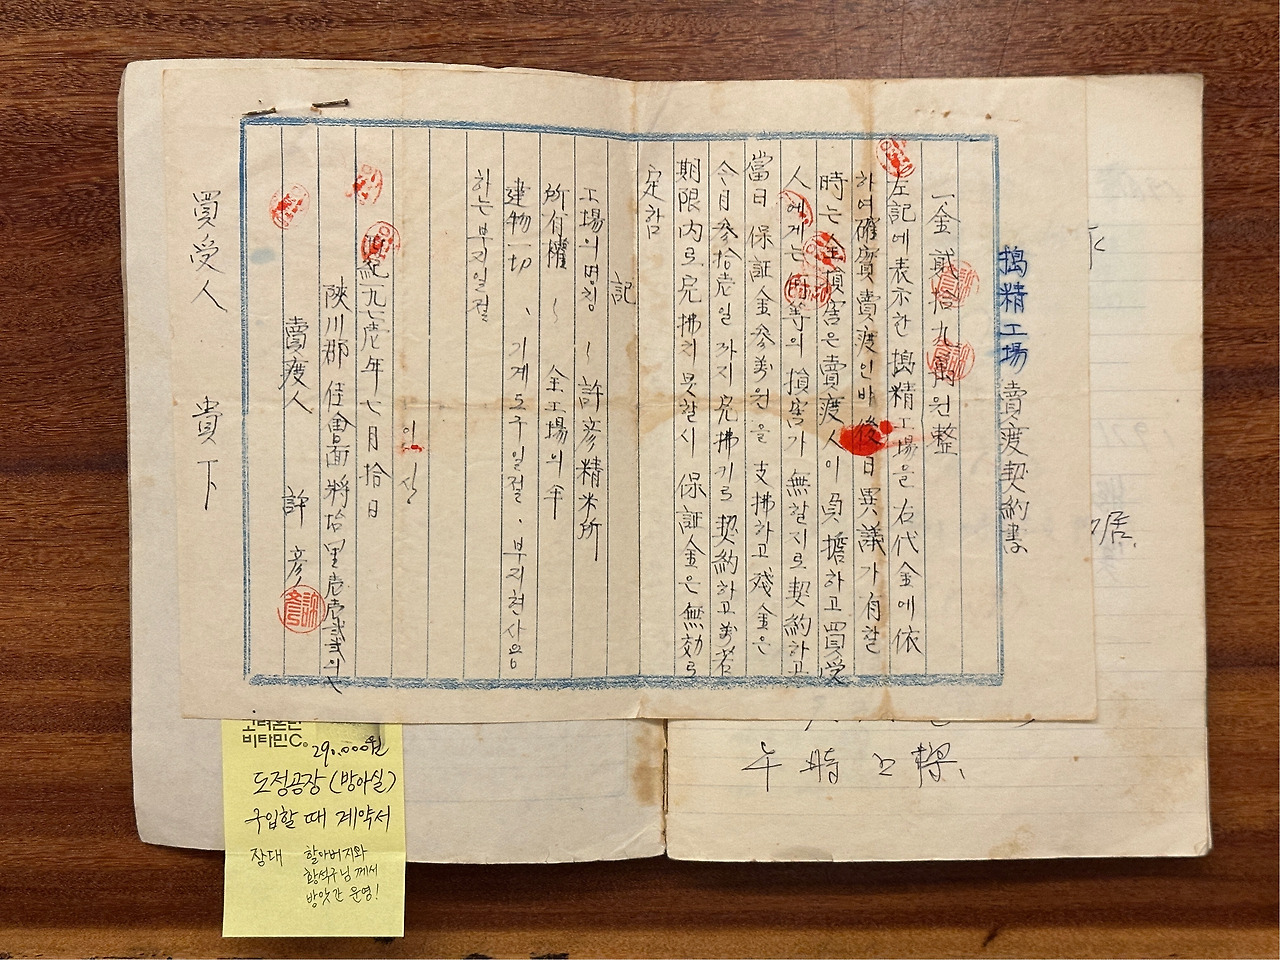 搗精工場 賣渡契約書
一金 貳拾九萬원整
左記에 表示한 搗精工場을 右代金에 依
하여 確實 賣渡인바 後日 異議가 有할
時는 全損害은 賣渡人이 負擔하고 買受
人에게는 何等의 損害가 無할지로 契約하고
當日 保証金 參萬원을 支拂하고 殘金은
今月 參拾壱일까지 完拂기로 契約하고 萬若
期限內로 完拂치 못할시 保証金은 無効로
定함
記
工場의 명칭 ~ 許彦精米所
所有權 ~ 全工場의
建物一切、기계도구일절、부지현사용
하는부지일절
이상
西紀一九七壱年七月拾日
陜川郡 佳會面 將台里 壱壱貳의七
賣渡人 許彦
買受人 貴下
午時上樑
비타민C
290.000원
도정공장(방아실)
구입할 때 계약서
장대 할아버지와
황석구님께서
방앗간 운영!